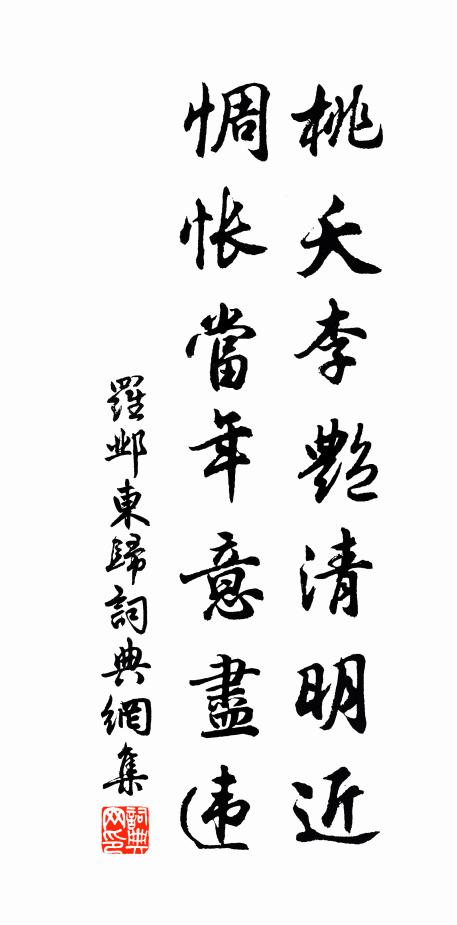 桃夭李艷清明近
惆怅當年意盡违
羅邺東歸詞典網集
詞典网印